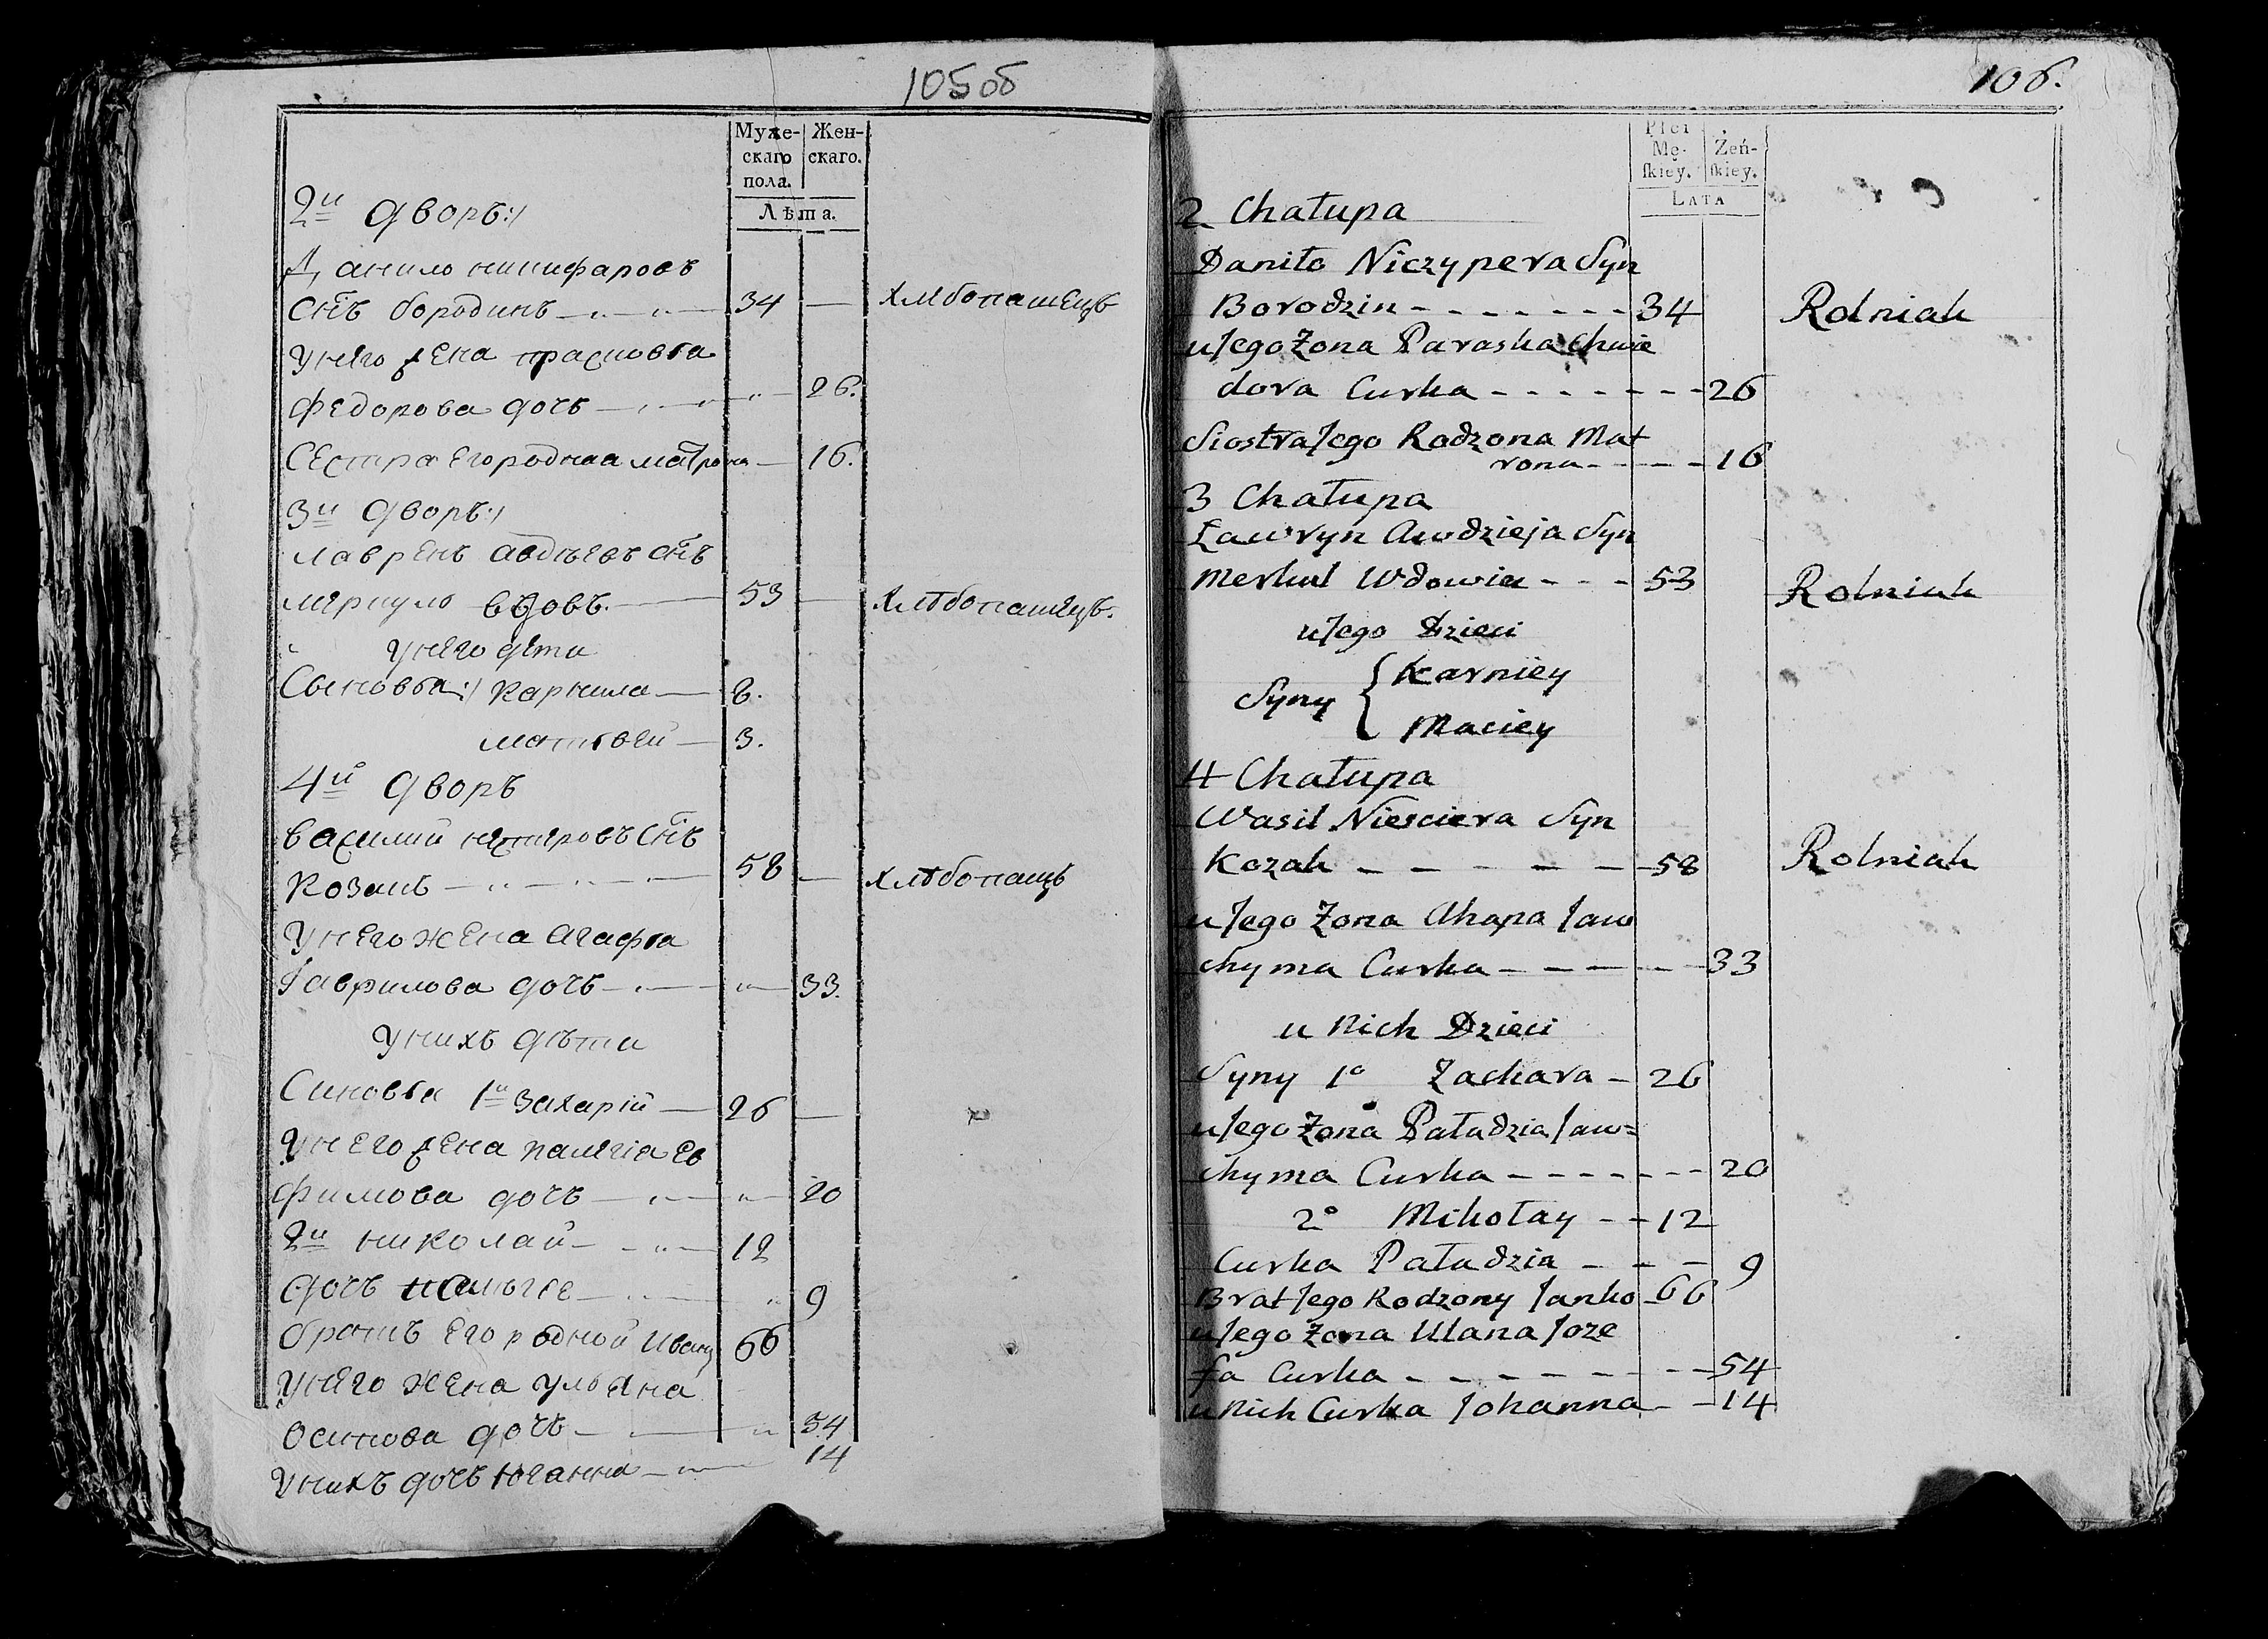 105об
Мужескаго пола.
Женскаго.
Лѣта.
2й дворъ:/
Данило никифаровъ
снъ бородинъ 34 — хлѣбопашецъ
У него жена прасковья
федорова дочь 26.
Сестра его родная матрона 16.
3й дворъ:/
лаврень авдѣевъ снъ
меркуло вдовъ. 53 — хлѣбопашецъ.
у него дети
Сыновья:/ карнила 8.
матвѣй 3.
4й дворъ
василий нестеровъ снъ
козакъ 58 — хлѣбопашцъ
У него жена агафья
Гаврилова дочь 33.
У нихъ дѣти
Синовья 1й захарій 26 —
У него жена палегіа ев
фимова дочь 20
2й николай 12
дочь 9
братъ его родной иванъ 66
У него жена ульяна
Осипова дочь 54
У нихъ дочь юганна 14
106.
Płci Męskiey.
Żeńskiey.
LATA
2 Chałupa
Daniło Niczypera Syn
Borodzin 34 Rolnik
u Jego Żona Paraska Chwie
dora Curka 26
Siostra Jego Rodzona Mat
rona 16
3 Chałupa
Ławryn Awdzieja Syn
Merkul Wdowiec 53 Rolnik
u Jego Dzieci
Syny { Karniey
Maciey
4 Chałupa
Wasil Niesciera Syn
Kozak 58 Rolnik
u Jego Żona Ahapa Jaw
chyma Curka 33
u Nich Dzieci
Syny 1o Zachara 26
u Jego Żona Paładzia Jaw=
chyma Curka 20
2o Mikołay 12
Curka Paładzia 9
Brat Jego Rodzony Janko 66
u Jego Żona Ulana Joze
fa Curka 54
u Nich Curka Johanna 14